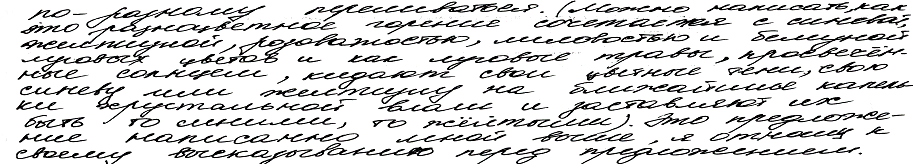 по-разному переливаться. (Можно написать, как
это разноцветное горение сочетается с синевой,
желтизной, розоватостью, лиловостью и белизной
луговых цветов и как луговые травы, просвечён-
ные солнцем, кидают свои цветные тени, свою
синеву или желтизну на ближайшие капель
ки хрустальной влаги и заставляют их
быть то синими, то жёлтыми). Это предложе-
ние написанно мной выше, я отнощ к
своему высказыванию перед предложением.